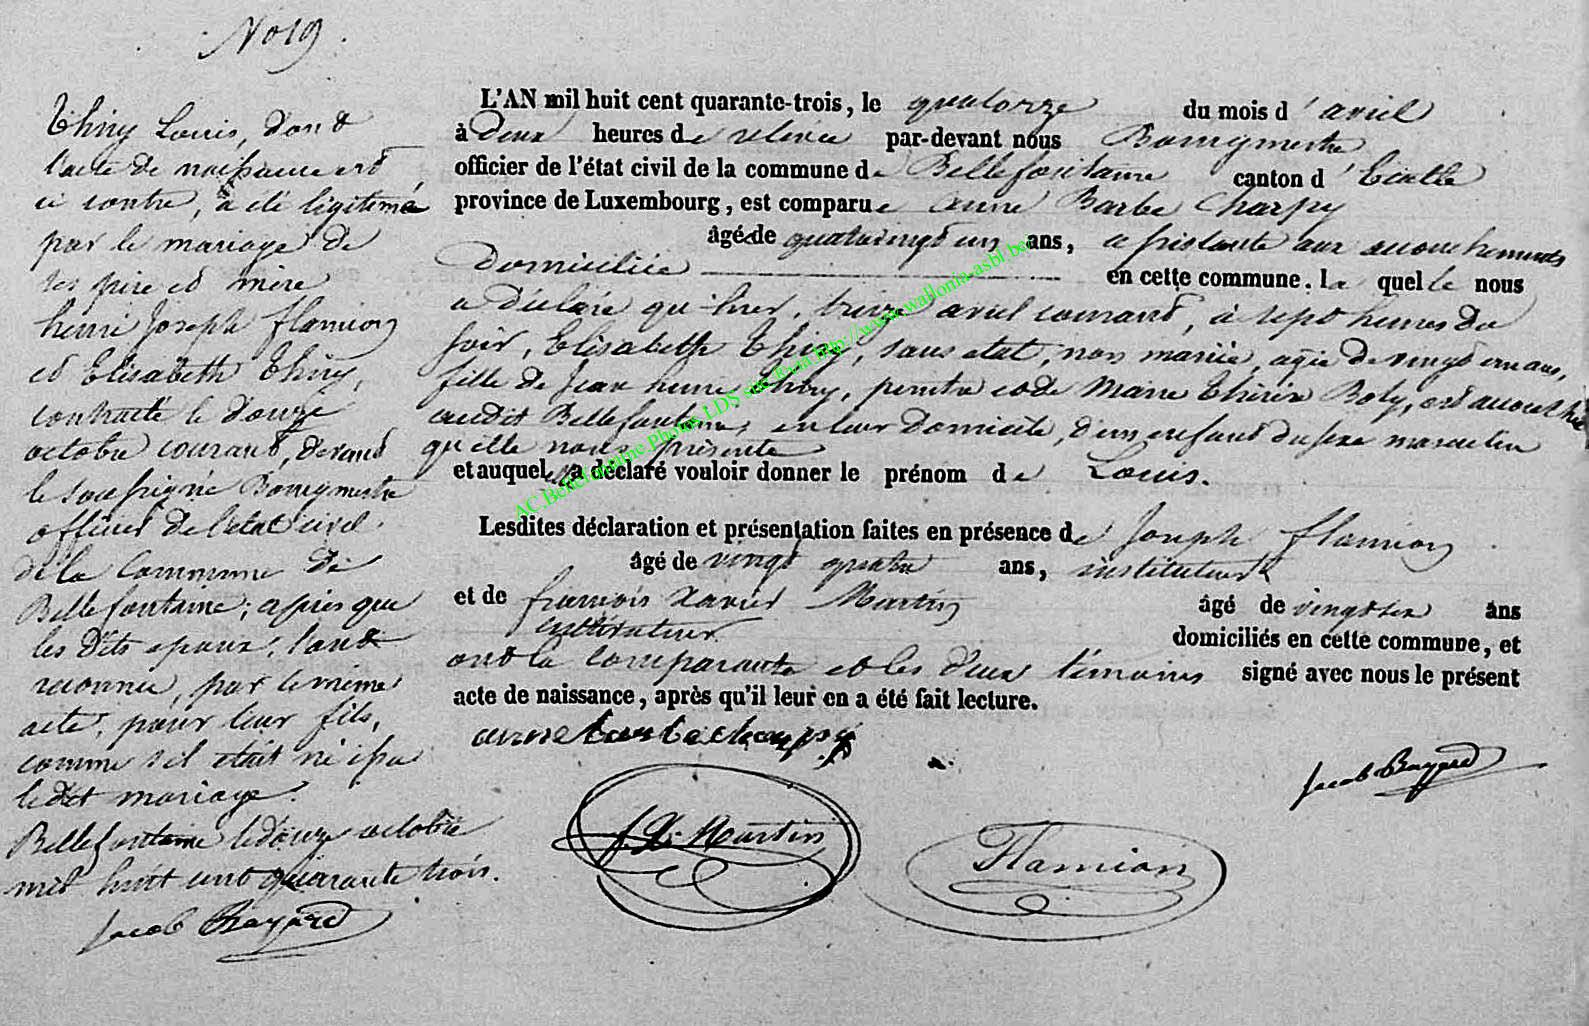 No 19.
Thiry Louis, dont
l'acte de naissance est
ci contre, a été légitimé
par le mariage de
ses père et mère
henri Joseph flamion
et Elisabeth Thiry,
contracté le douze
octobre courant, devant
le soussigné Bourgmestre
officier de l'état civil
de la Commune de
Bellefontaine; après que
les dits epoux, l'ont
reconnu, par le même
acte, pour leur fils,
comme s'il etait né
ledit mariage.
Bellefontaine le douze octobre
mil huit cent quarante trois.
Jacob Bayard
L'AN mil huit cent quarante-trois, le quatorze du mois d'avril
à Deux heures de relevée par-devant nous Bourgmestre,
officier de l'état civil de la commune de Bellefontaine canton d'Etalle
province de Luxembourg, est comparue anne Barbe Charpy
âgée de quatrevingt un ans, assistante aux accouchements
Domiciliée en cette commune. La quelle nous
a déclaré qu'hier, treize avril courant, à sept heures du
soir, Elisabeth Thiry, sans etat, non mariée, agée de vingt un ans,
fille de Jean henri thiry, peintre et de Marie Thérèse Boly, est accouchée
audit Bellefontaine, en leur Domicile, d'un enfant du sexe masculin
qu'elle nous présente
et auquel elle a déclaré vouloir donner le prénom de Louis.
Lesdites déclaration et présentation faites en présence de Joseph flamion
âgé de vingt quatre ans, instituteur
et de françois Xavier Martin âgé de vingt six ans
cultivateur domiciliés en cette commune, et
ont la comparante et les deux témoins signé avec nous le présent
acte de naissance, après qu'il leur en a été fait lecture.
anne barbe charpy
Jacob Bayard
f. X. Martin
Flamion
AC Bellefontaine Photos LDS site & via http://www.wallonia-asbl.be/